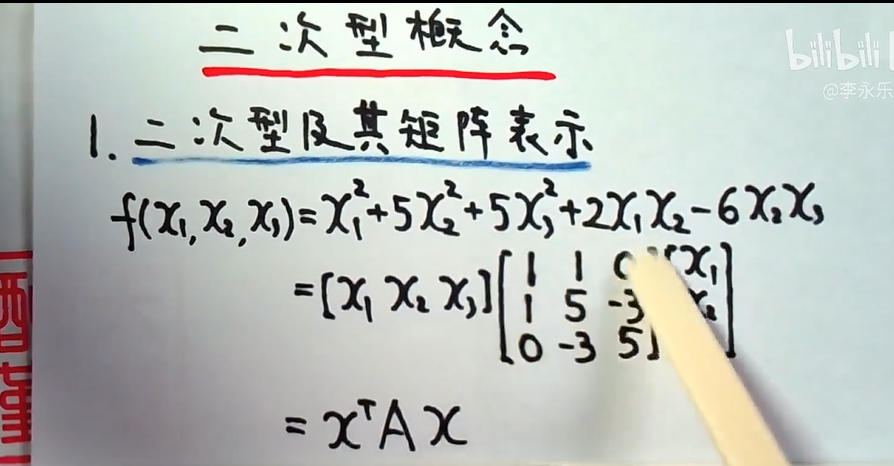 二次型概念
bilibili
@李永乐
1. 二次型及其矩阵表示
f(x₁,x₂,x₃)=x₁²+5x₂²+5x₃²+2x₁x₂-6x₂x₃
=[x₁ x₂ x₃][1 1 0][x₁
1 5 -3 x₂
0 -3 5]
=xᵀAx